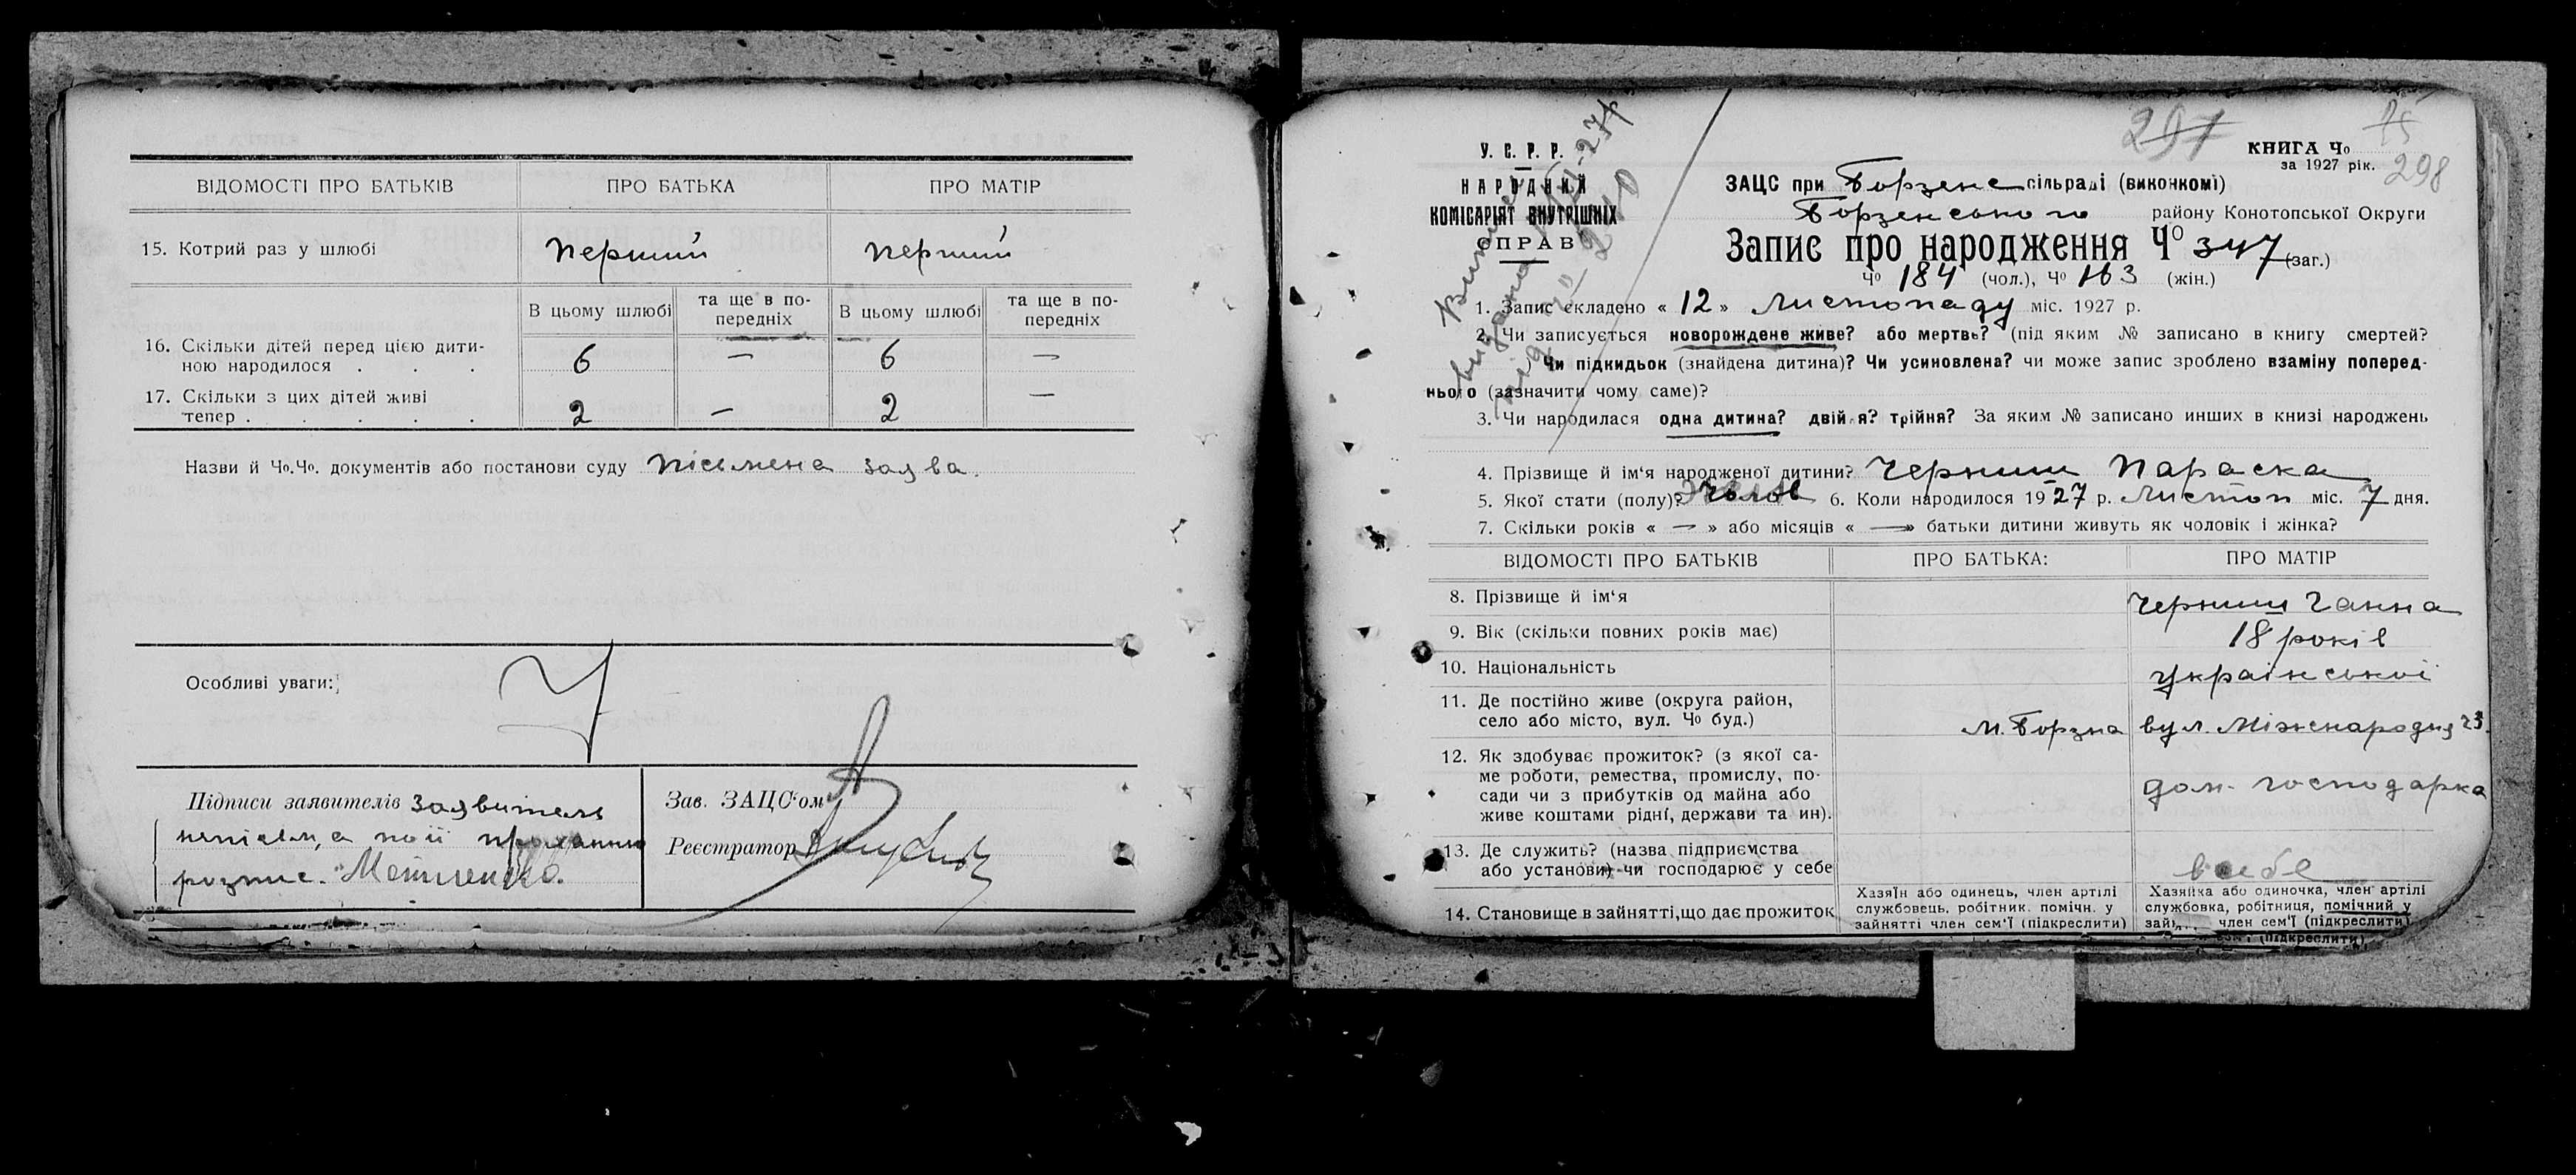 ВІДОМОСТІ ПРО БАТЬКІВ ПРО БАТЬКА ПРО МАТІР
15. Котрий раз у шлюбі перший перший
В цьому шлюбі та ще в по-передніх В цьому шлюбі та ще в по-передніх
16. Скільки дітей перед цією дити-
ною народилося . . . 6 — 6 —
17. Скільки з цих дітей живі
тепер . . . . . 2 — 2 —
Назви й Чо.Чо. документів або постанови суду пісьмена заява.
Особливі уваги:
Підписи заявителів Заявитель
непісьм, а по її проханню
розпис.
Зав. ЗАЦС'ом
Реєстратор
297
КНИГА Чо 25
за 1927 рік.
298
У. С. Р. Р.
НАРОДНИЙ
КОМІСАРІЯТ ВНУТРІШНІХ
СПРАВ
ЗАЦС при Борзенс сільраді (виконкомі)
Борзенського району Конотопської Округи
Запис про народження Чо 347 (заг.)
Чо 184 (чол.), Чо 163 (жін.)
1. Запис складено « 12 » листопаду міс. 1927 р.
2. Чи записується новорождене живе? або мертве? (під яким № записано в книгу смертей?
) Чи підкидьок (знайдена дитина)? Чи усиновлена? чи може запис зроблено взаміну поперед-
нього (зазначити чому саме)?
3. Чи народилася одна дитина? двійня? трійня? За яким № записано инших в книзі народжень
4. Прізвище й ім'я народженої дитини? Черниш Параска
5. Якої стати (полу)? 6. Коли народилося 1927 р. Листоп міс. 7 дня.
7. Скільки років « — » або місяців « — » батьки дитини живуть як чоловік і жінка?
ВІДОМОСТІ ПРО БАТЬКІВ ПРО БАТЬКА: ПРО МАТІР
8. Прізвище й ім'я Черниш Ганна
9. Вік (скільки повних років має) 18 років
10. Національність української
11. Де постійно живе (округа район,
село або місто, вул. Чо буд.) м. Борзна вул. Міжнародня 23.
12. Як здобуває прожиток? (з якої са-
ме роботи, ремества, промислу, по-
сади чи з прибутків од майна або
живе коштами рідні, держави та ин). дом. господарка
13. Де служить? (назва підприємства
або установи) чи господарює у себе в себе
14. Становище в зайнятті, що дає прожиток
Хазяїн або одинець, член артілі
службовець, робітник. помічн. у
зайнятті член сем'ї (підкреслити)
Хазяйка або одиночка, член артілі
службовка, робітниця, помічний у
член сем'ї (підкреслити)